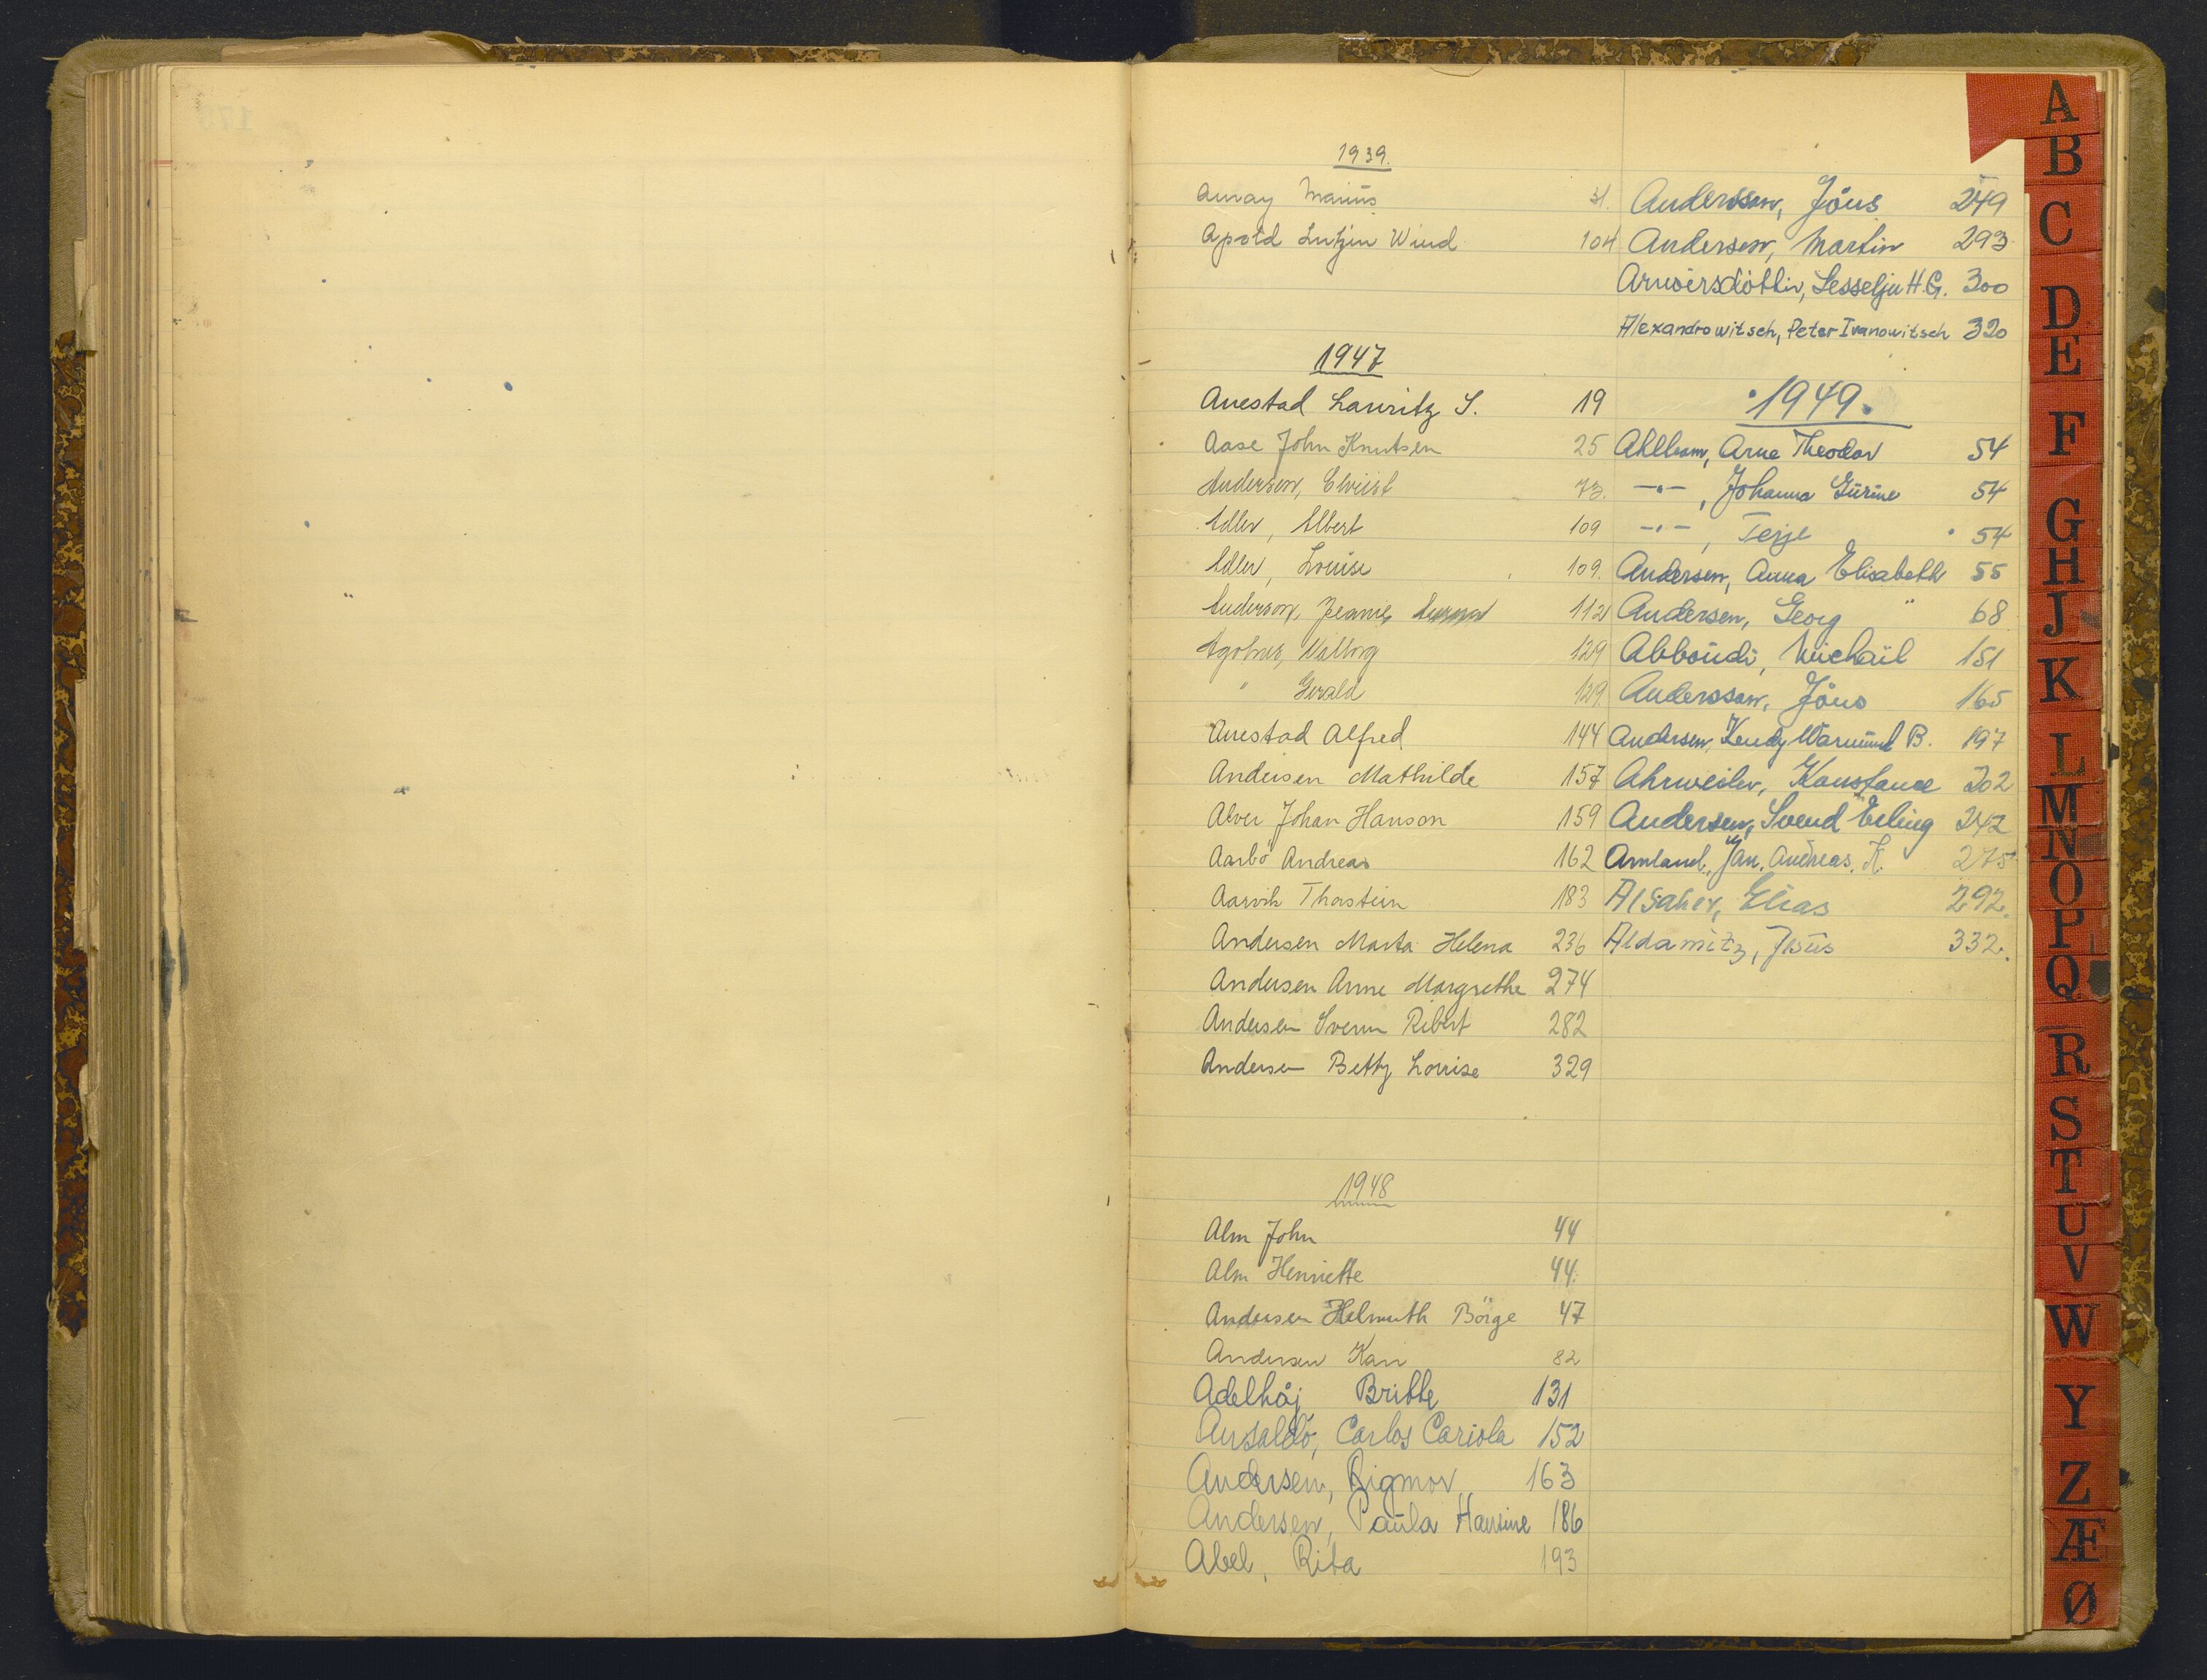 1939.
Marius 31.
Apold Wind 104
1947
Auestad Lauritz S. 19
Aase John Knutsen 25
Anderson, 73.
Adler, Albert 109
Adler, Louise 109.
Anderson, Jeanie 112
Valborg 129
" Gerald 129.
Auestad Alfred 144
Andersen Mathilde 157
Alver Johan Hanson 159
Aarbö Andreas 162
Aarvik Thorstein 183
Andersen Marta Helena 236
Andersen Anne Margrethe 274
Andersen Svenn Robert 282
Andersen Betty Lovise 329
1948
Alm John 44
Alm Henriette 44.
Andersen Helmuth Börge 47
Andersen Kari 82
Adelhøj Britte 131
Ansaldo, Carlos Cariola 152
Andersen, Rigmor 163
Andersen, Paula Hansine 186
Abel, Rita 193
Andersson, Jöns 249
Andersen, Martin 293
H.G. 300
Alexandrowitsch, Peter Ivanowitsch 320
1949.
Arne Theodor 54
—"—, Johanna 54
—"—, Terje 54
Andersen, Anna Elisabeth 55
Andersen, Georg 68
Abboudi, Michail 151
Andersson, Jöns 165
Andersen, B. 197
Ahrweiler, Konstance 202
Andersen, Svend Erling 242
Amland, Jan, Andreas, K. 275
Alsaher, Elias 292.
Aldamitz, Jesüs 332.
A
B
C
D
E
F
G
H
J
K
L
M
N
O
P
Q
R
S
T
U
V
W
Y
Z
Æ
Ø